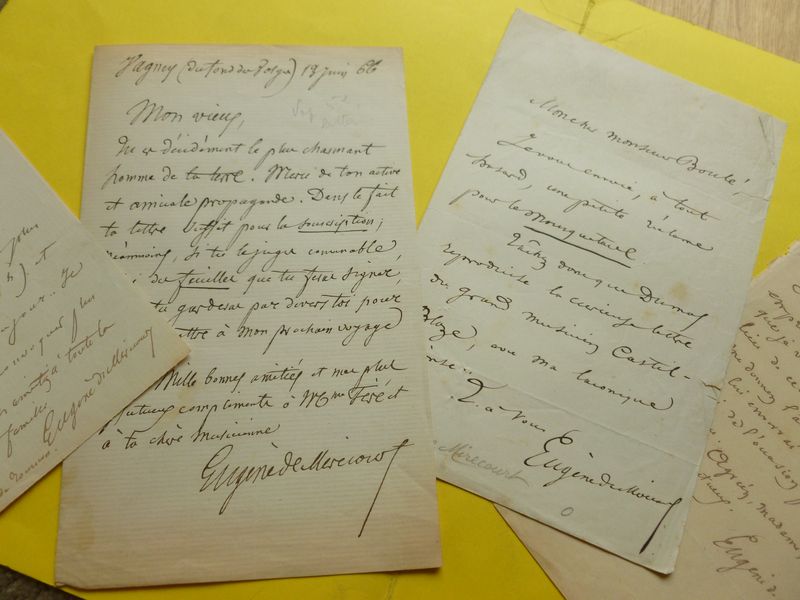 plus
et
jour. Je
plus
toute la
famille
Eugène de Mirecourt
Vagney (au fond des Vosges) 13 juin 66
Mon vieux,
Tu es décidément le plus charmant
homme de la terre. Merci de ton active
et amicale propagande. Dans le fait
ta lettre suffit pour la souscription;
néanmoins, si tu le juges convenable,
feuilles que tu feras signer,
tu garderas par devers toi pour
à mon prochain voyage
Mille bonnes amitiés et mes plus
compliments à Mme Féré et
à ta chère musicienne
Eugène de Mirecourt
Mon cher monsieur Boulé,
Je vous envoie, à tout
hasard, une petite réclame
pour le Mousquetaire.
Tâchez donc que Dumas
reproduise la curieuse lettre
du grand musicien Castil-
Blaze, avec ma laconique
à vous
Eugène de Mirecourt
Mirecourt
que je
lieu de ce
donner
lui
de l'occasion
Agréez, madame
Eugène de